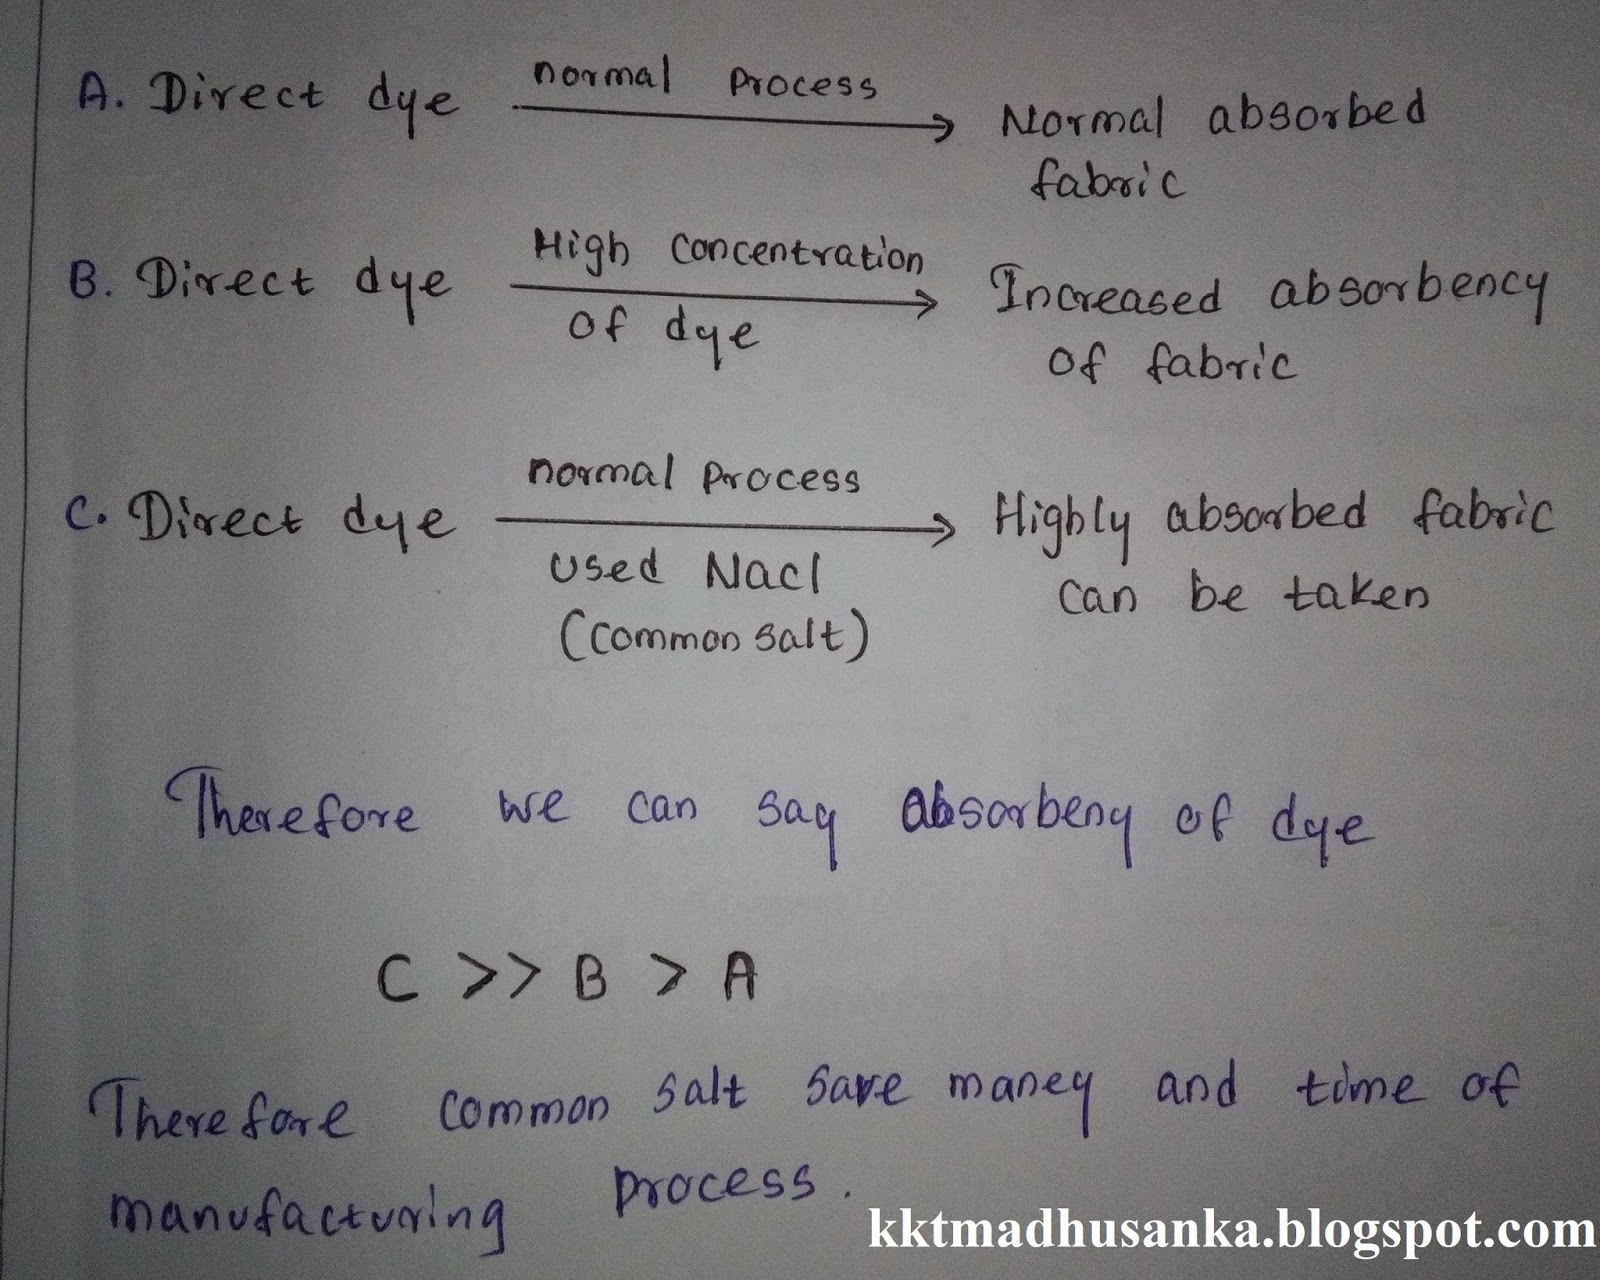 A. Direct dye normal process → Normal absorbed
fabric
B. Direct dye High concentration → Increased absorbency
of dye of fabric
C. Direct dye normal process → Highly absorbed fabric
used Nacl can be taken
(common salt)
Therefore we can say absorbeny of dye
C >> B > A
Therefore common salt save maney and time of
manufacturing process.
kktmadhusanka.blogspot.com